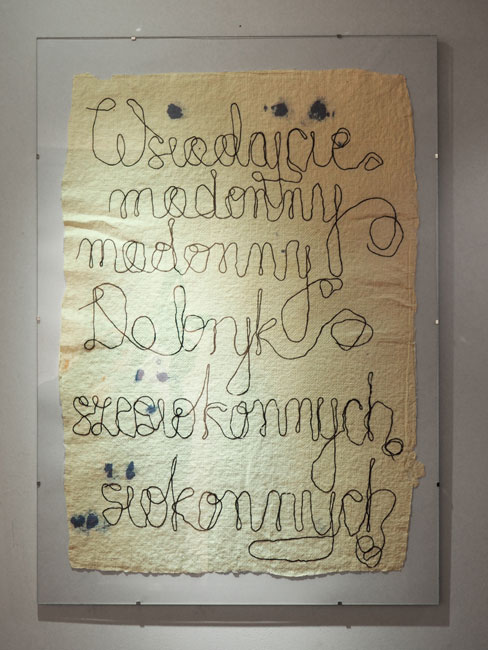 Wsiadajcie,
madonny
madonny
Do bryk
szesciokonnych,
sciokonnych!